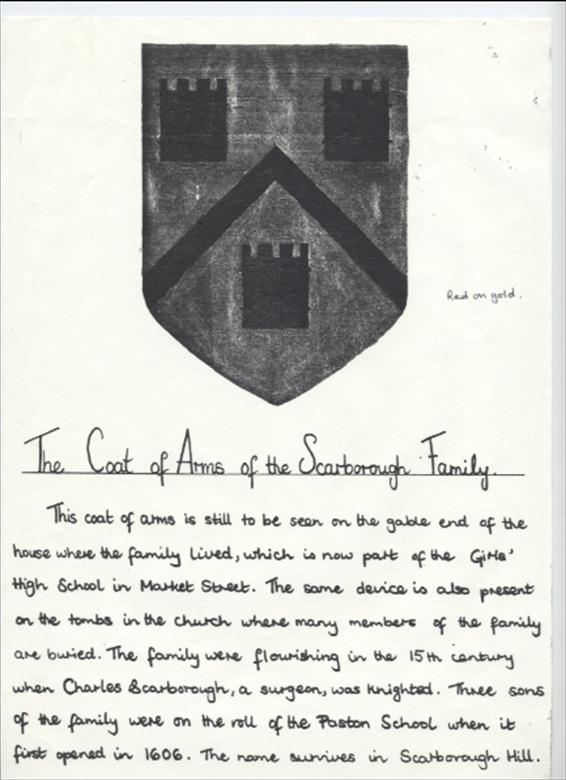 Red on gold.
The Coat of Arms of the Scarborough Family.
This coat of arms is still to be seen on the gable end of the
house where the family lived, which is now part of the Girls'
High School in Market Street. The same device is also present
on the tombs in the church where many members of the family
are buried. The family were flourishing in the 15th century
when Charles Scarborough, a surgeon, was knighted. Three sons
of the family were on the roll of the Paston School when it
first opened in 1606. The name survives in Scarborough Hill.